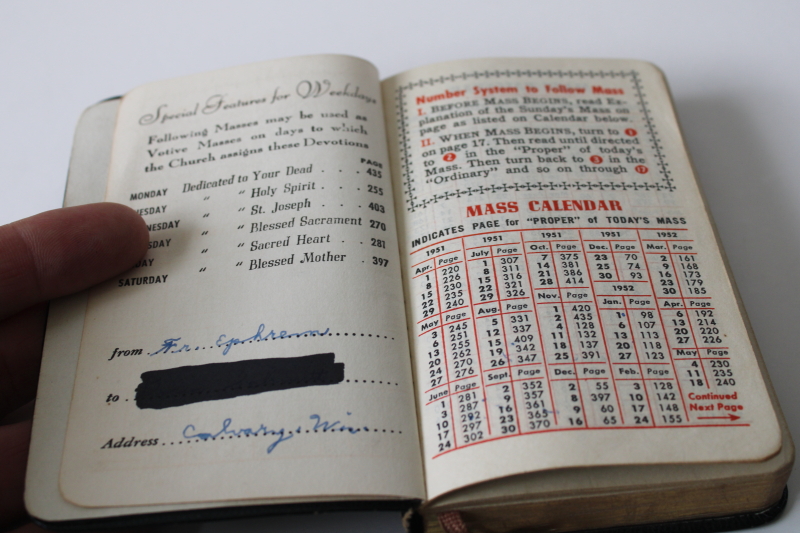 Special Features for Weekdays
Following Masses may be used as
Votive Masses on days to which
the Church assigns these Devotions
PAGE
MONDAY Dedicated to Your Dead . . . 435
ESDAY " " Holy Spirit . . . 255
NESDAY " " St. Joseph . . . 403
" " Blessed Sacrament 270
DAY " " Sacred Heart . . . 281
SATURDAY " " Blessed Mother . . 397
from Fr. Ephrem
to
Address Calvary, Wis
Number System to Follow Mass
I. BEFORE MASS BEGINS, read Ex-
planation of the Sunday's Mass on
page as listed on Calendar below.
II. WHEN MASS BEGINS, turn to 1
on page 17. Then read until directed
to 2 in the "Proper" of today's
Mass. Then turn back to 3 in the
"Ordinary" and so on through 17
MASS CALENDAR
INDICATES PAGE for "PROPER" of TODAY'S MASS
1951
Apr. Page
1 220
8 226
15 230
22 235
29 240
May Page
3 245
6 251
13 255
20 262
24 270
27 276
June Page
1 281
3 287
10 292
17 297
24 302
1951
July Page
1 307
8 311
15 316
22 321
29 326
Aug. Page
5 331
12 337
15 409
19 342
26 347
Sept. Page
2 352
9 357
16 361
23 365
30 370
1951
Oct. Page
7 375
14 381
21 386
28 414
Nov. Page
1 420
2 435
4 128
11 132
18 137
25 391
Dec. Page
2 55
8 397
9 60
16 65
1951
Dec. Page
23 70
25 74
30 93
1952
Jan. Page
1 98
6 107
13 113
20 118
27 123
Feb. Page
3 128
10 142
17 148
24 155
1952
Mar. Page
2 161
9 168
16 173
23 179
30 185
Apr. Page
6 192
13 214
20 220
27 226
May Page
4 230
11 235
18 240
Continued
Next Page